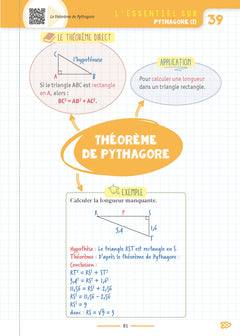 Le théorème de Pythagore
L'ESSENTIEL SUR
PYTHAGORE (1)
39
LE THÉORÈME DIRECT
C
l'hypoténuse
A
B
Si le triangle ABC est rectangle
en A, alors :
BC² = AB² + AC².
APPLICATION
Pour calculer une longueur
dans un triangle rectangle.
THÉORÈME
DE PYTHAGORE
EXEMPLE
Calculer la longueur manquante.
R
?
S
3,4
1,6
T
Hypothèse : Le triangle RST est rectangle en S.
Théorème : D'après le théorème de Pythagore :
Conclusion :
RT² = RS² + ST²
3,4² = RS² + 1,6²
11,56 = RS² + 2,56
RS² = 11,56 - 2,56
RS² = 9
donc : RS = √9 = 3